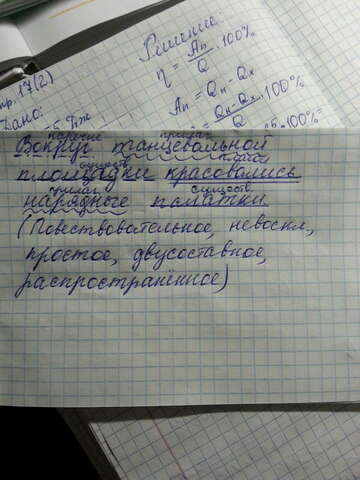 Решение:
η = Aп/Q · 100%
Aп = Qн - Qх
Qн-Qх · 100%
Дано:
наречие прилаг
Вокруг танцевальной
существ. глагол
площадки красовались
прилаг существ.
нарядные палатки
(Повествовательное, невоскл,
простое, двусоставное,
распространённое)